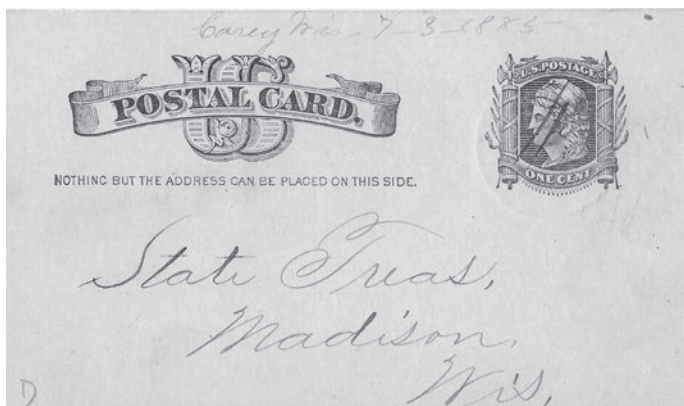 Carey Wis - 7 - 3 - 1885
US
POSTAL CARD.
U.S. POSTAGE
ONE CENT
NOTHING BUT THE ADDRESS CAN BE PLACED ON THIS SIDE.
State Treas,
Madison,
Wis,